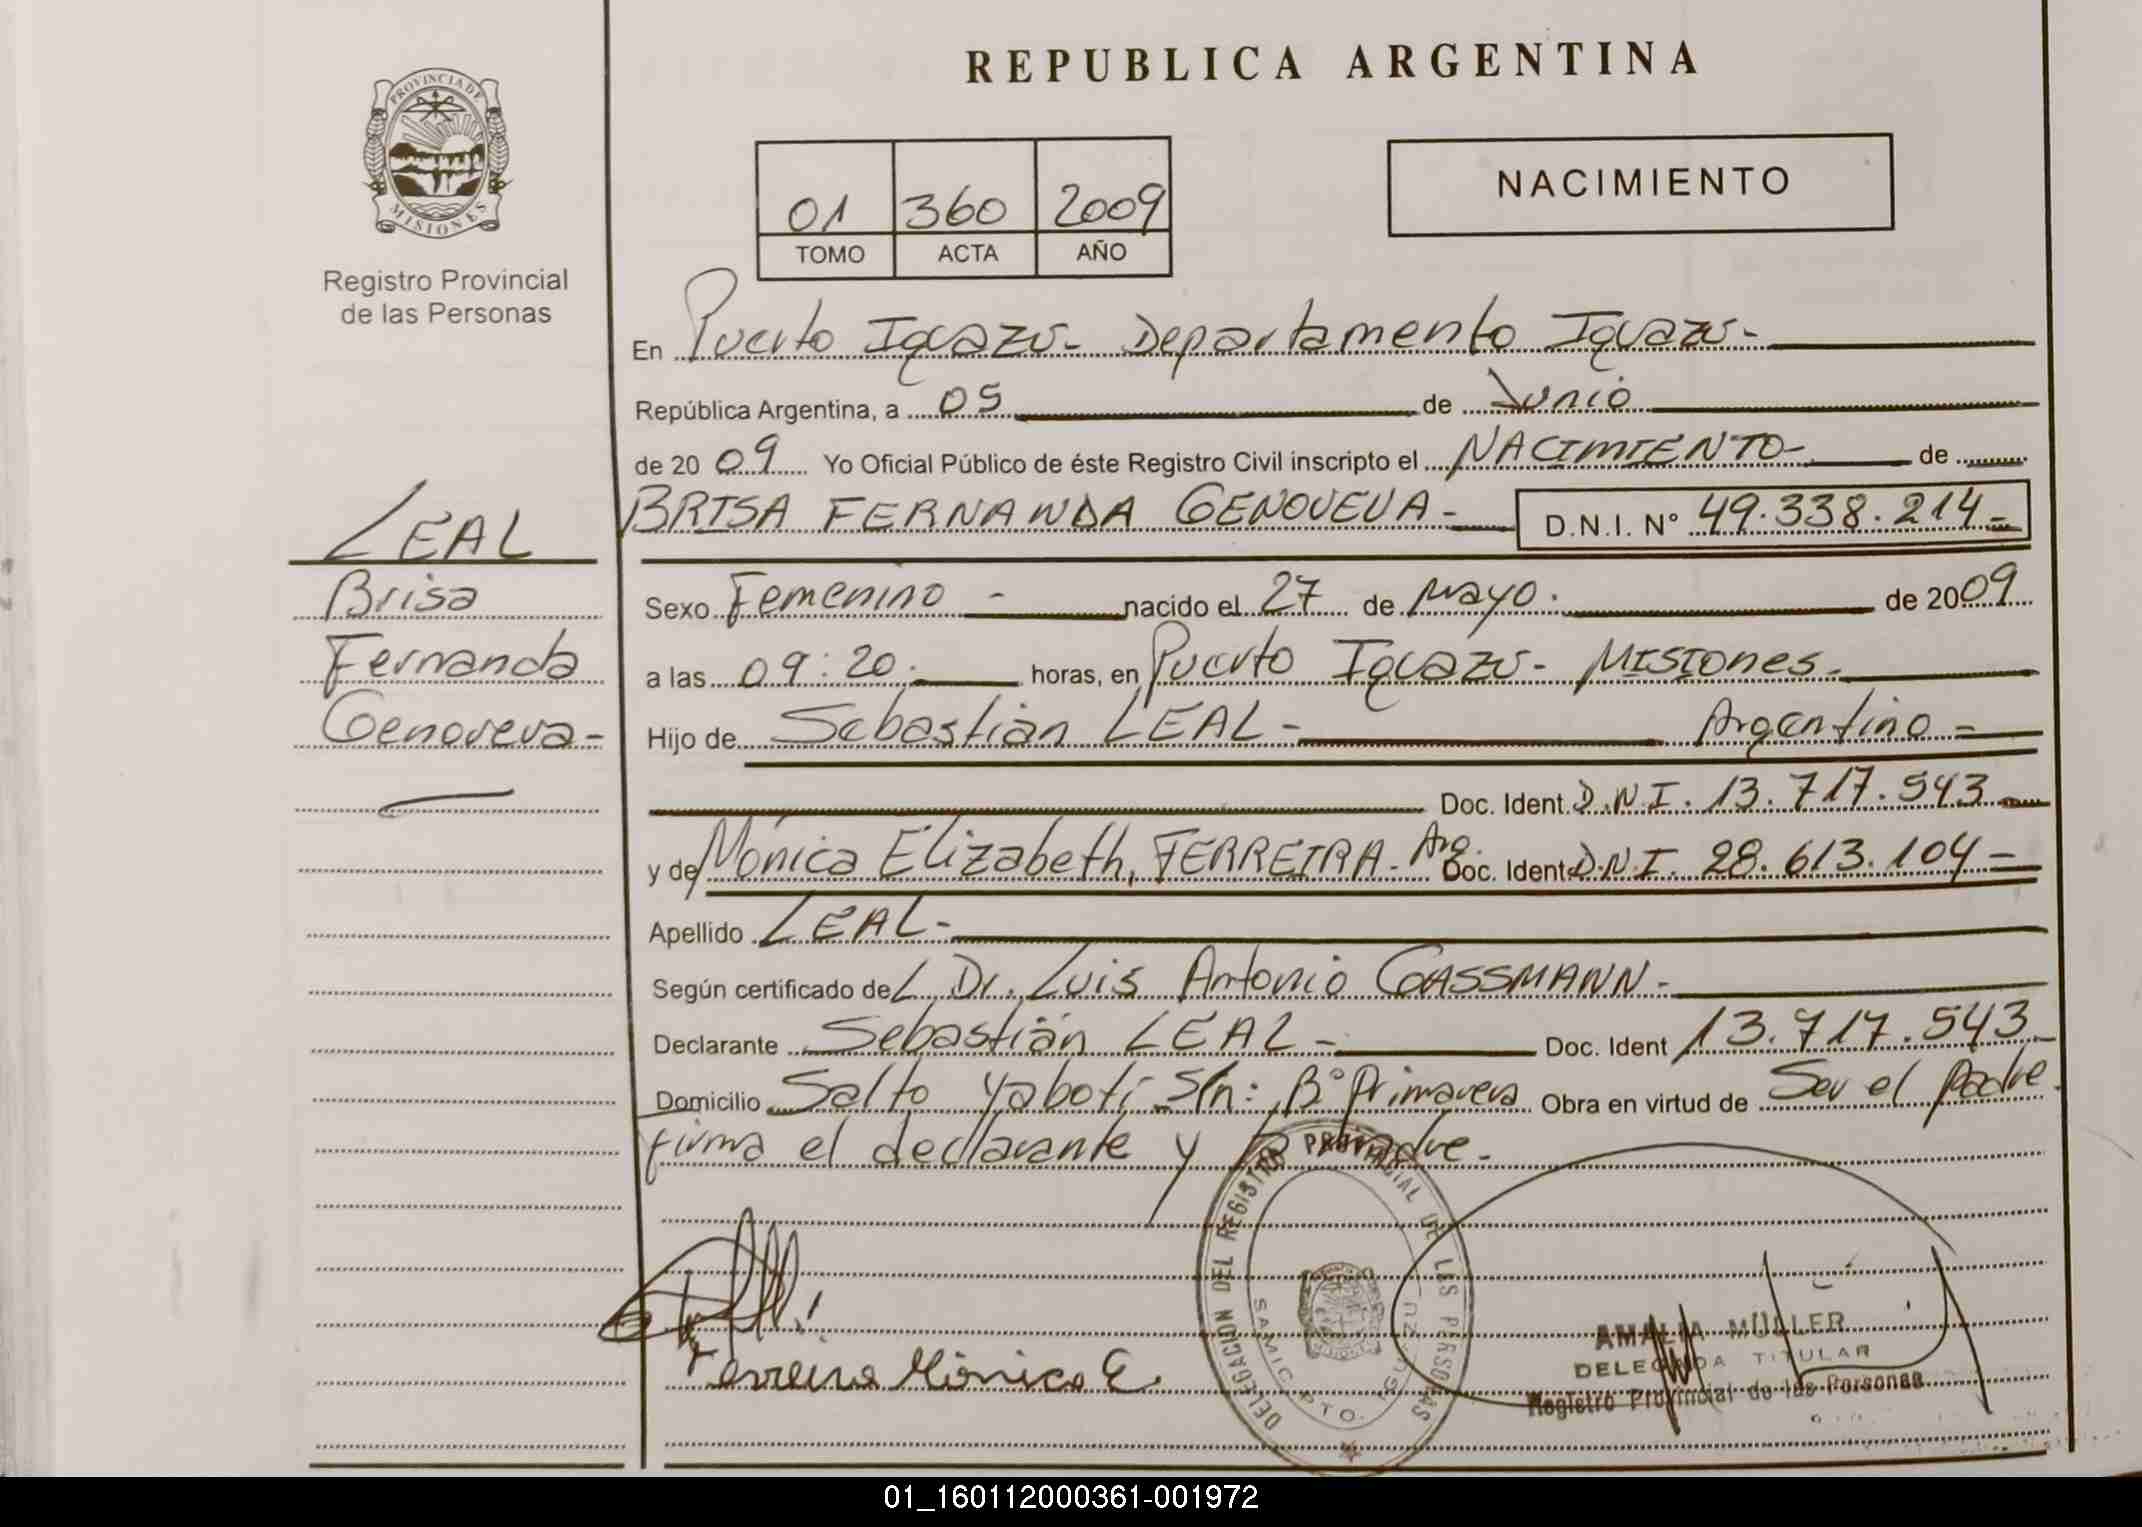 PROVINCIA DE
MISIONES
Registro Provincial
de las Personas
LEAL
Brisa
Fernanda
Genoveva-
REPUBLICA ARGENTINA
01 360 2009
TOMO ACTA AÑO
NACIMIENTO
En Puerto Iguazú- Departamento Iguazú-
República Argentina, a 05 de Junio
de 2009 Yo Oficial Público de éste Registro Civil inscripto el NACIMIENTO- de
BRISA FERNANDA GENOVEVA- D.N.I. N° 49.338.214-
Sexo Femenino - nacido el 27 de Mayo. de 2009
a las 09:20. horas, en Puerto Iguazú- MISIONES-
Hijo de Sebastián LEAL- Argentino-
Doc. Ident. D.N.I. 13.717.543-
y de Mónica Elizabeth, FERREIRA- Arg. Doc. Ident D.N.I. 28.613.104-
Apellido LEAL-
Según certificado del Dr. Luis Antonio GASSMANN-
Declarante Sebastián LEAL- Doc. Ident 13.717.543-
Domicilio Salto Yabotí S/n: B° Primavera Obra en virtud de Ser el padre.
firma el declarante y la madre.-
Ferreira Mónica E.
DELEGACION DEL REGISTRO PROVINCIAL DE LAS PERSONAS
DPTO. IGUAZU
AMALIA MÜLLER
DELEGADA TITULAR
Registro Provincial de las Personas
01_160112000361-001972